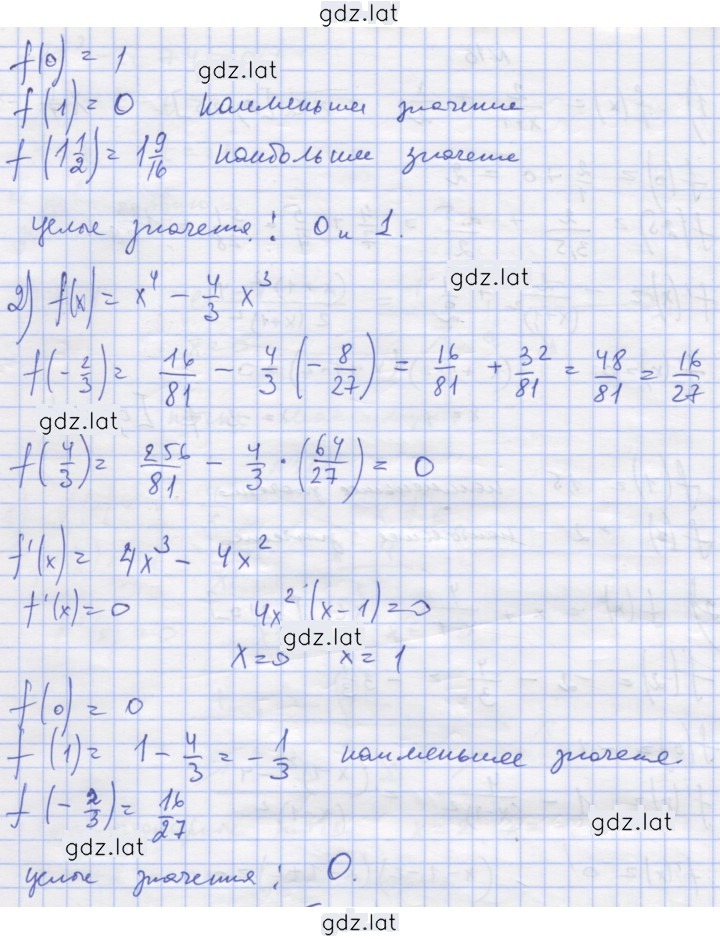 gdz.lat
f(0) = 1
gdz.lat
f(1) = 0 наименьшее значение
f(1 1/2) = 1 9/16 наибольшее значение
целые значения: 0 и 1.
gdz.lat
2) f(x) = x⁴ - 4/3 x³
f(-2/3) = 16/81 - 4/3 (-8/27) = 16/81 + 32/81 = 48/81 = 16/27
gdz.lat
f(4/3) = 256/81 - 4/3 · (64/27) = 0
f'(x) = 4x³ - 4x²
f'(x) = 0 4x² (x-1) = 0
gdz.lat
x = 0 x = 1
f(0) = 0
f(1) = 1 - 4/3 = -1/3 наименьшее значение.
f(-2/3) = 16/27
gdz.lat
gdz.lat
целые значения: 0.
gdz.lat